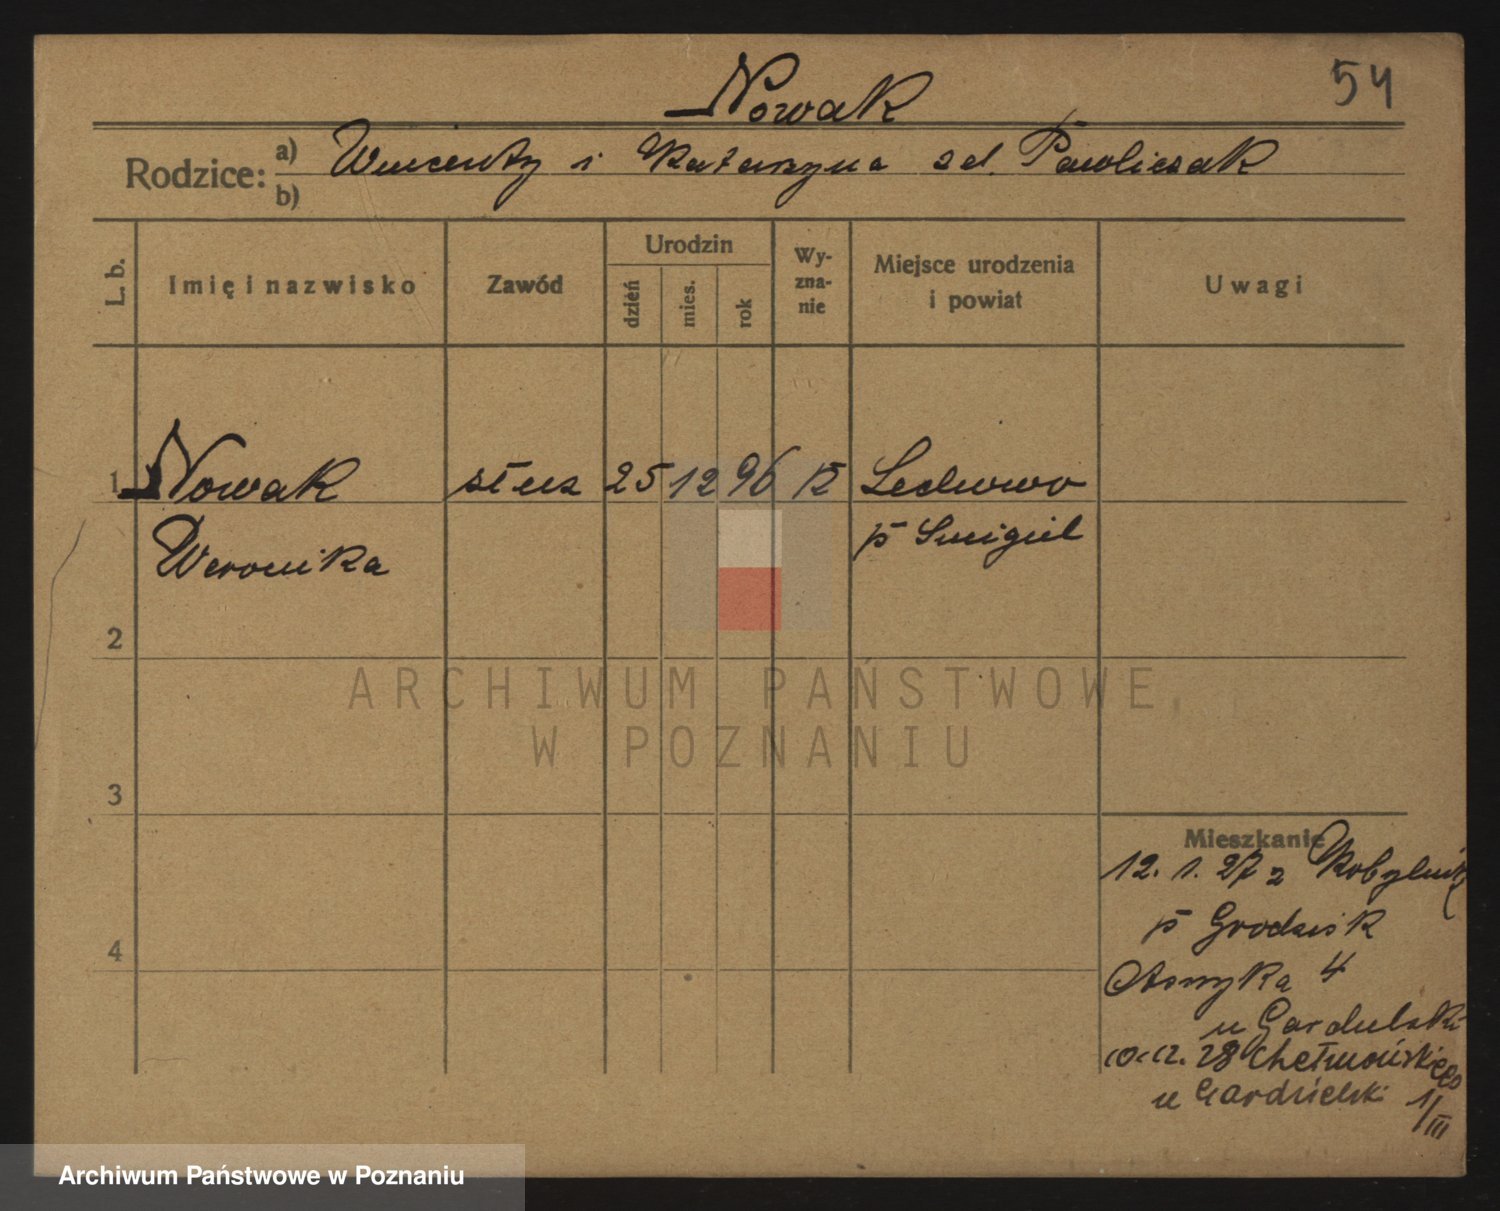 54
Nowak
Rodzice: a) Wincenty i Katarzyna zd. Pawliczak
b)
L. b.
Imię i nazwisko
Zawód
Urodzin
dzień
mies.
rok
Wy-
zna-
nie
Miejsce urodzenia
i powiat
Uwagi
1 Nowak służ 25 12 96 K
Weronika
p Smigiel
2
ARCHIWUM PAŃSTWOWE
W POZNANIU
3
Mieszkanie
12. 1. 27 z Kobylnik
p Grodzisk
4
Asnyka 4
u Gardulski
10.12. 28 Chełmońskiego
u Gardzielski 1/III
Archiwum Państwowe w Poznaniu